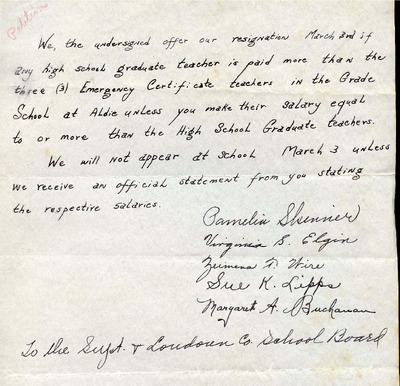 Petitions
We, the undersigned offer our resignation March 3rd if
any high school graduate teacher is paid more than the
three (3) Emergency Certificate teachers in the Grade
School at Aldie unless you make their salary equal
to or more than the High School Graduate teachers.
We will not appear at school March 3 unless
we receive an official statement from you stating
the respective salaries.
Pamelia Skinner
Virginia S. Elgin
Wire
Sue K. Lipps
Margaret A. Buchanan
To the Supt. & Loudoun Co School Board